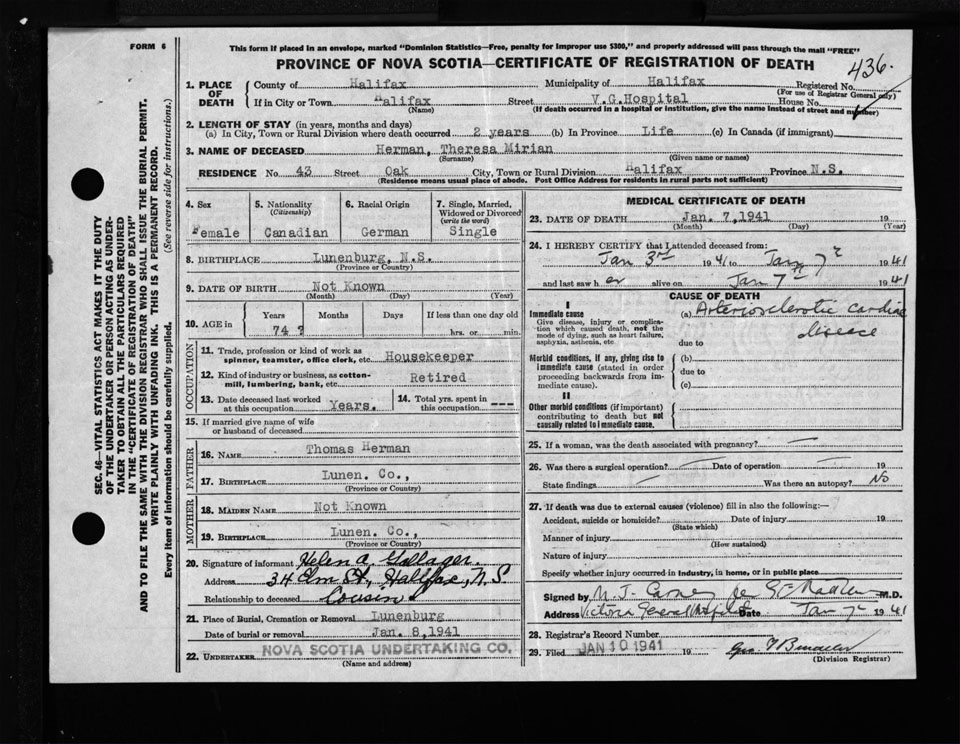 FORM 6
This form if placed in an envelope, marked "Dominion Statistics—Free, penalty for improper use $300," and properly addressed will pass through the mail "FREE"
PROVINCE OF NOVA SCOTIA—CERTIFICATE OF REGISTRATION OF DEATH
436.
SEC. 46—VITAL STATISTICS ACT MAKES IT THE DUTY
OF THE UNDERTAKER OR PERSON ACTING AS UNDER-
TAKER TO OBTAIN ALL THE PARTICULARS REQUIRED
IN THE "CERTIFICATE OF REGISTRATION OF DEATH"
AND TO FILE THE SAME WITH THE DIVISION REGISTRAR WHO SHALL ISSUE THE BURIAL PERMIT.
WRITE PLAINLY WITH UNFADING INK. THIS IS A PERMANENT RECORD.
Every item of information should be carefully supplied. (See reverse side for instructions.)
1. PLACE OF DEATH
County of Halifax Municipality of Halifax Registered No.
(For use of Registrar General only)
If in City or Town Halifax Street V.G.Hospital House No.
(Name) (If death occurred in a hospital or institution, give the name instead of street and number)
2. LENGTH OF STAY (in years, months and days)
(a) In City, Town or Rural Division where death occurred 2 years (b) In Province Life (c) In Canada (if immigrant)
3. NAME OF DECEASED Herman, Theresa Mirian
(Surname) (Given name or names)
RESIDENCE No. 43 Street Oak City, Town or Rural Division Halifax Province N.S.
(Residence means usual place of abode. Post Office Address for residents in rural parts not sufficient)
4. Sex Female
5. Nationality (Citizenship) Canadian
6. Racial Origin German
7. Single, Married, Widowed or Divorced (write the word) Single
8. BIRTHPLACE Lunenburg, N.S.
(Province or Country)
9. DATE OF BIRTH Not Known
(Month) (Day) (Year)
10. AGE in Years Months Days If less than one day old
74 ? hrs. or min.
OCCUPATION
11. Trade, profession or kind of work as
spinner, teamster, office clerk, etc. Housekeeper
12. Kind of industry or business, as cotton-
mill, lumbering, bank, etc. Retired
13. Date deceased last worked at this occupation Years.
14. Total yrs. spent in this occupation ---
15. If married give name of wife
or husband of deceased
FATHER
16. NAME Thomas Herman
17. BIRTHPLACE Lunen. Co.,
(Province or Country)
MOTHER
18. MAIDEN NAME Not Known
19. BIRTHPLACE Lunen. Co.,
(Province or Country)
20. Signature of informant Helen A. Gallager.
Address 34 Elm St, Halifax, N.S.
Relationship to deceased Cousin
21. Place of Burial, Cremation or Removal Lunenburg
Date of burial or removal Jan. 8,1941
22. UNDERTAKER NOVA SCOTIA UNDERTAKING CO.
(Name and address)
MEDICAL CERTIFICATE OF DEATH
23. DATE OF DEATH Jan. 7,1941 19
(Month) (Day) (Year)
24. I HEREBY CERTIFY that I attended deceased from:
Jan 3rd 1941 to Jan 7 1941
and last saw her alive on Jan 7th 1941
CAUSE OF DEATH
I
Immediate cause
Give disease, injury or complica-
tion which caused death, not the
mode of dying, such as heart failure,
asphyxia, asthenia, etc.
(a) Arteriosclerotic cardiac
disease
due to
Morbid conditions, if any, giving rise to
immediate cause (stated in order
proceeding backwards from im-
mediate cause).
(b)
due to
(c)
II
Other morbid conditions (if important)
contributing to death but not
causally related to immediate cause.
25. If a woman, was the death associated with pregnancy? —
26. Was there a surgical operation? — Date of operation — 19
State findings — Was there an autopsy? No
27. If death was due to external causes (violence) fill in also the following:—
Accident, suicide or homicide? Date of injury 19
(State which)
Manner of injury
(How sustained)
Nature of injury
Specify whether injury occurred in industry, in home, or in public place
Signed by M.D.
Address Victoria General Hospital Date Jan 7 1941
28. Registrar's Record Number
29. Filed JAN 10 1941 19
(Division Registrar)